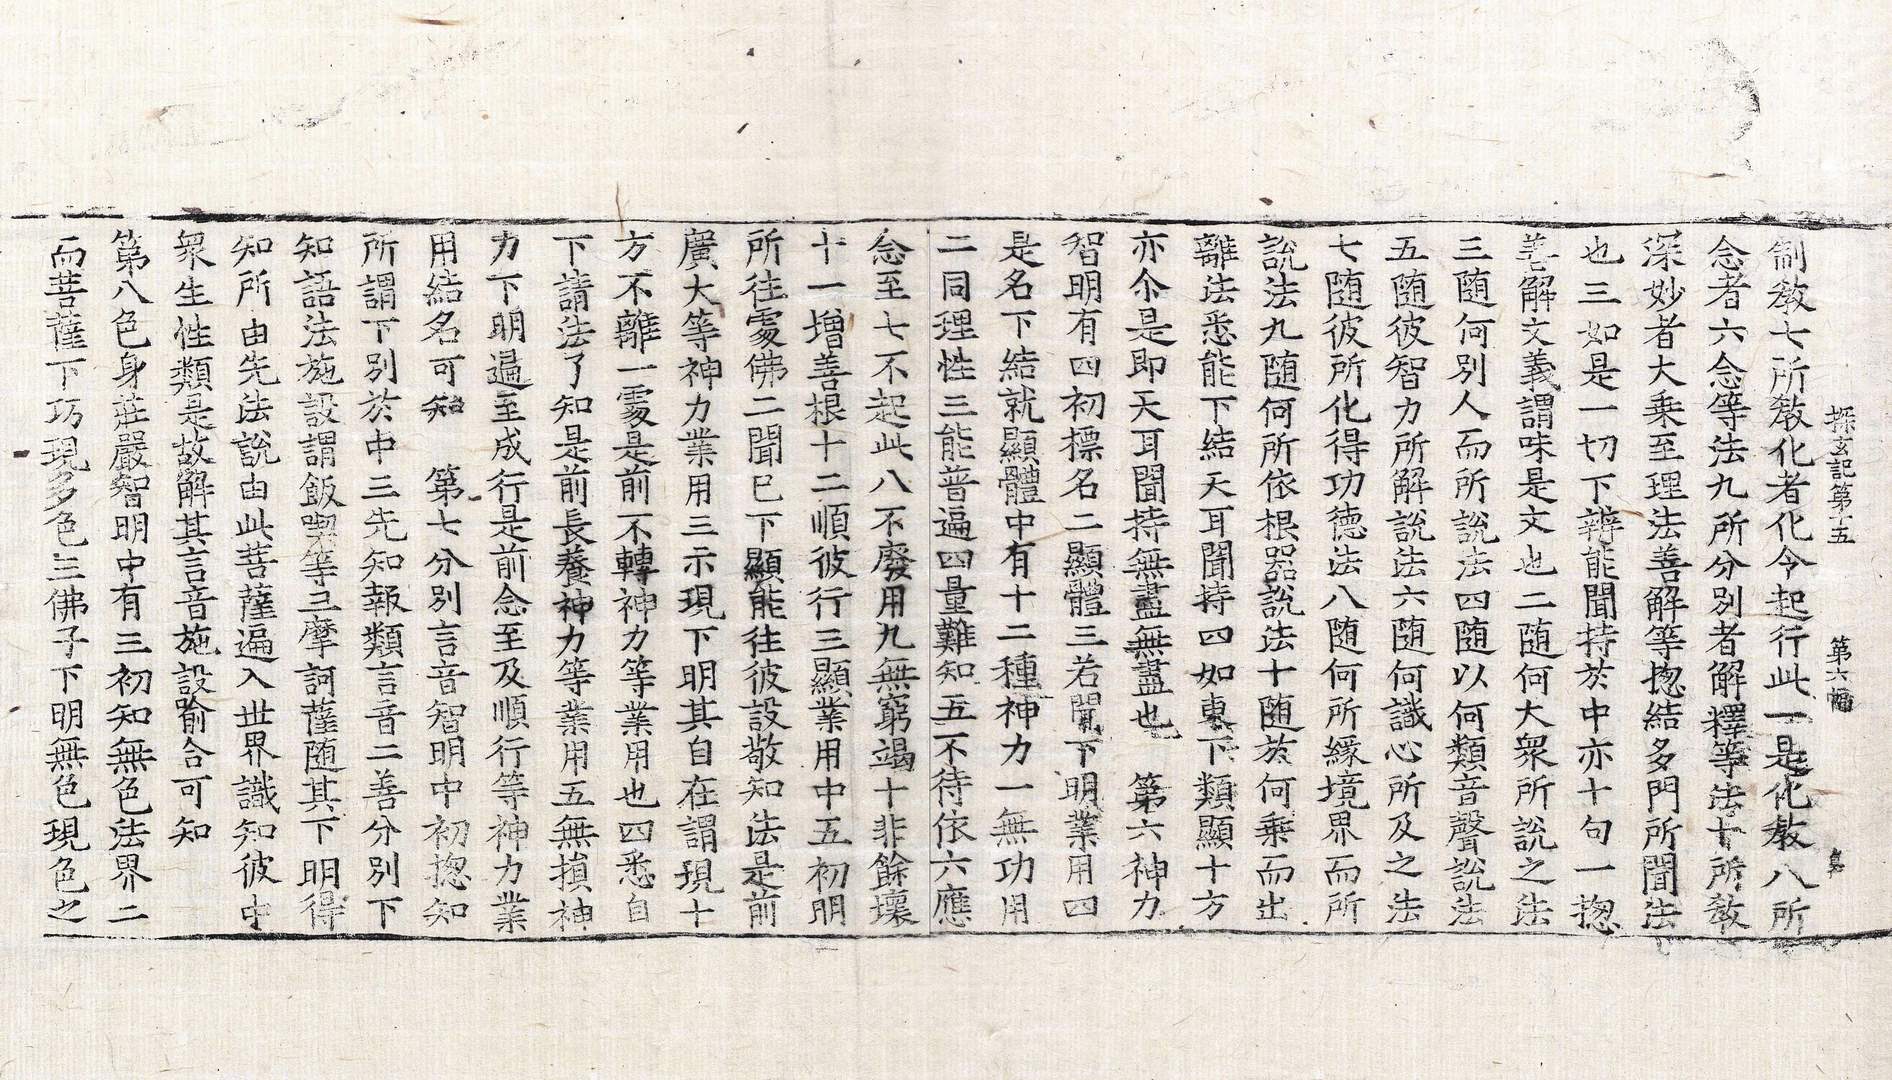 探玄記第十五 第六幅
制教七所教化者化令起行此一是化教八所
念者六念等法九所分別者解釋等法十所教
深妙者大乘至理法善解等揔結多門所聞法
也三如是一切下辨能聞持於中亦十句一揔
善解文義謂味是文也二随何大衆所說之法
三随何別人而所說法四随以何類音聲說法
五随彼智力所解說法六随何識心所及之法
七随彼所化得功德法八随何所緣境界而所
說法九随何所依根器說法十随於何乘而出
離法悉能下結天耳聞持四如東下類顯十方
亦尒是即天耳聞持無盡無盡也 第六神力
智明有四初標名二顯體三若聞下明業用四
是名下結就顯體中有十二種神力一無功用
二同理性三能普遍四量難知五不待依六應
念至七不起此八不廢用九無窮竭十非餘壞
十一增善根十二順彼行三顯業用中五初明
所往䖏佛二聞已下顯能往彼設敬知法是前
廣大等神力業用三示現下明其自在謂現十
方不離一䖏是前不轉神力等業用也四悉自
下請法了知是前長養神力等業用五無損神
力下明遍至成行是前念至及順行等神力業
用結名可知 第七分別言音智明中初揔知
所謂下別於中三先知報類言音二善分別下
知語法施設謂飯喫等三摩訶薩随其下明得
知所由先法說由此菩薩遍入世界識知彼中
衆生性類是故解其言音施設喻合可知
第八色身莊嚴智明中有三初知無色法界二
而菩薩下巧現多色三佛子下明無色現色之